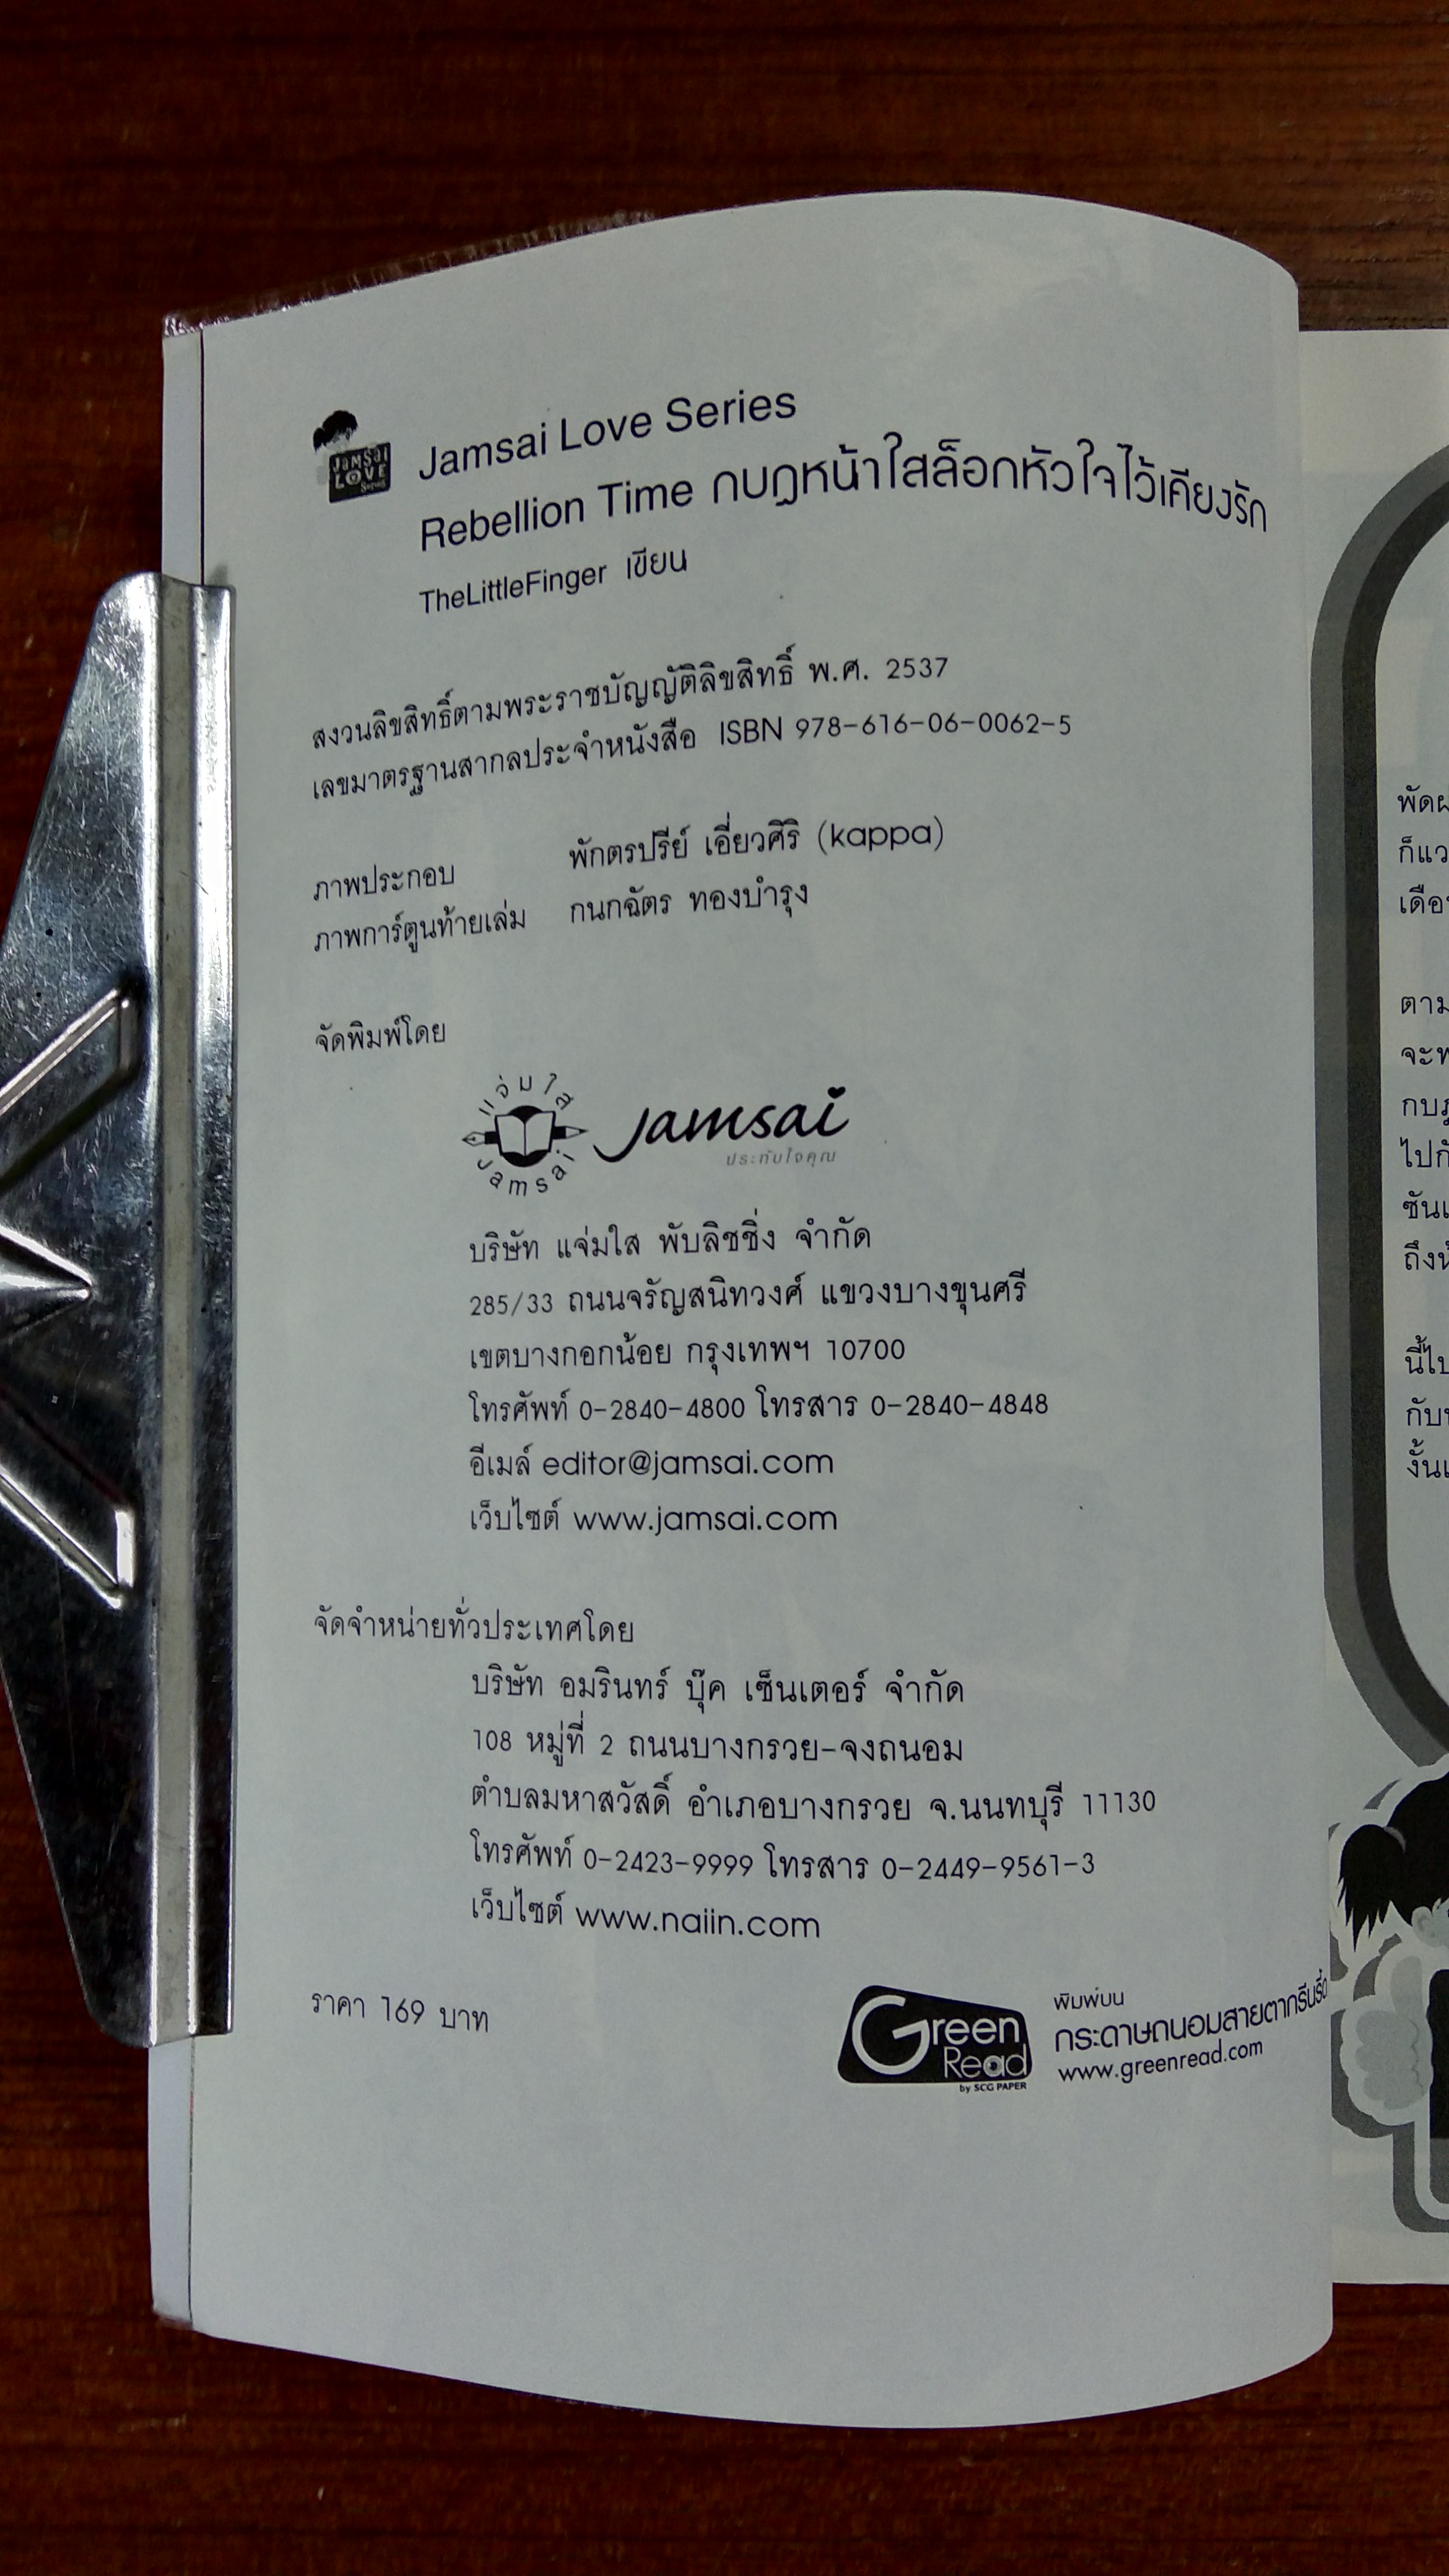 JAMSAI
LOVE
Series
Jamsai Love Series
Rebellion Time กบฏหน้าใสล็อกหัวใจไว้เคียงรัก
TheLittleFinger เขียน
สงวนลิขสิทธิ์ตามพระราชบัญญัติลิขสิทธิ์ พ.ศ. 2537
เลขมาตรฐานสากลประจำหนังสือ ISBN 978-616-06-0062-5
ภาพประกอบ พักตรปรีย์ เอี่ยวศิริ (kappa)
ภาพการ์ตูนท้ายเล่ม กนกฉัตร ทองบำรุง
จัดพิมพ์โดย
แจ่มใส
Jamsai
Jamsai
ประทับใจคุณ
บริษัท แจ่มใส พับลิชชิ่ง จำกัด
285/33 ถนนจรัญสนิทวงศ์ แขวงบางขุนศรี
เขตบางกอกน้อย กรุงเทพฯ 10700
โทรศัพท์ 0-2840-4800 โทรสาร 0-2840-4848
อีเมล์ editor@jamsai.com
เว็บไซต์ www.jamsai.com
จัดจำหน่ายทั่วประเทศโดย
บริษัท อมรินทร์ บุ๊ค เซ็นเตอร์ จำกัด
108 หมู่ที่ 2 ถนนบางกรวย-จงถนอม
ตำบลมหาสวัสดิ์ อำเภอบางกรวย จ.นนทบุรี 11130
โทรศัพท์ 0-2423-9999 โทรสาร 0-2449-9561-3
เว็บไซต์ www.naiin.com
ราคา 169 บาท
Green
Read
by SCG PAPER
พิมพ์บน
กระดาษถนอมสายตากรีนรี้ด
www.greenread.com